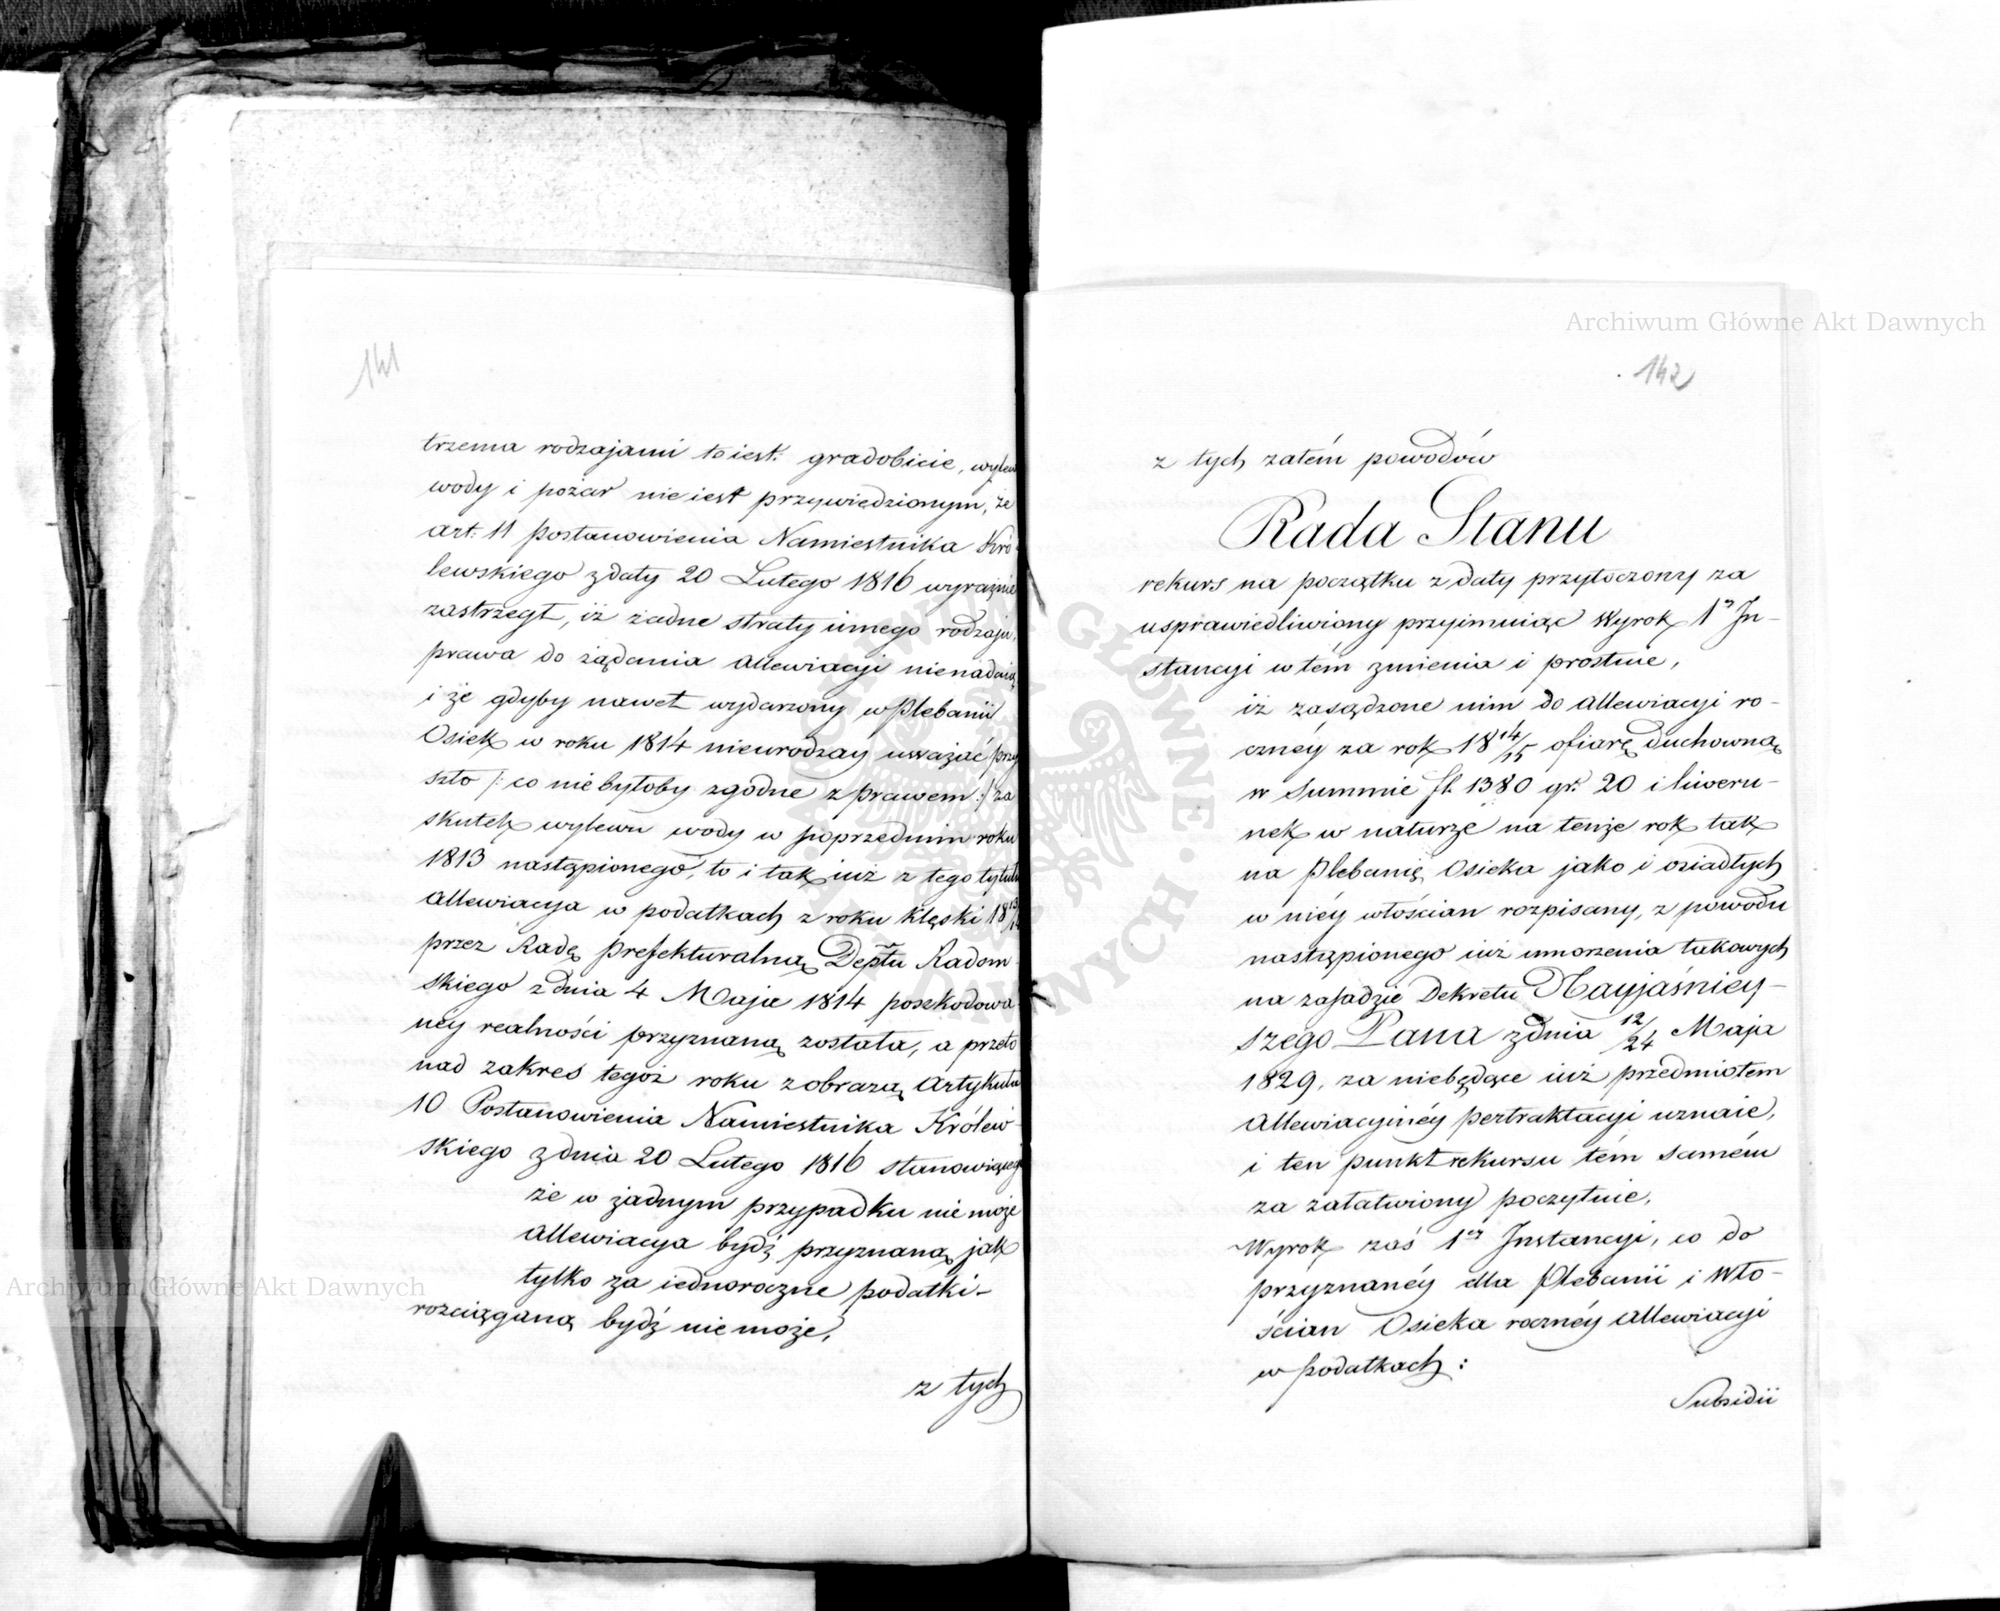 141
trzema rodzajami to iest: gradobicie, wylew
wody i pożar nie iest przywiedzionym, że
art: 11 Postanowienia Namiestnika Kró-
lewskiego z daty 20 Lutego 1816 wyraźnie
zastrzegł, iż żadne straty innego rodzaju,
prawa do żądania allewiacyi nienadaią
i że gdyby nawet wydarzony w Plebanii
Osiek w roku 1814 nieurodzay uważać przy
szło /: co nie byłoby zgodne z prawem :/ za
skutek wylewu wody w poprzednim roku
1813 nastąpionego, to i tak iuż z tego tytułu
allewiacya w podatkach z roku klęski 18 13/14
przez Radę Prefekturalną Deptu Radom
skiego z dnia 4 Maja 1814 poszkodowa
néy realności przyznaną została, a przeto
nad zakres tegoż roku z obrazą Artykułu
10 Postanowienia Namiestnika Królew-
skiego z dnia 20 Lutego 1816 stanowiącego
że w żadnym przypadku nie może
allewiacya bydź przyznaną jak
tylko za iednoroczne podatki-
rozciąganą bydź nie może,
z tych
142
z tych zatém powodów
Rada Stanu
rekurs na początku z daty przytoczony za
usprawiedliwiony przyimuiąc Wyrok 1éy In-
stancyi w tém zmienia i prostuie,
iż zasądzone nim do allewiacyi ro-
cznéy za rok 18 14/15 ofiarę duchowną
w Summie fl. 1380 gr. 20 i liweru-
nek w naturze na tenże rok tak
na Plebanię Osieka jako i osiadłych
w niéy włościan rozpisany, z powodu
nastąpionego iuż umorzenia takowych
na zasadzie Dekretu Nayjaśniey-
szego Pana z dnia 12/24 Maja
1829, za niebędące iuż przedmiotem
allewiacyinéy pertraktacyi uznaie,
i ten punkt rekursu tém samém
za załatwiony poczytuie,
Wyrok zaś 1éy Instancyi, co do
przyznanéy dla Plebanii i Wło-
ścian Osieka rocznéy allewiacyi
w podatkach:
Subsidii
Archiwum Główne Akt Dawnych
Archiwum Główne Akt Dawnych